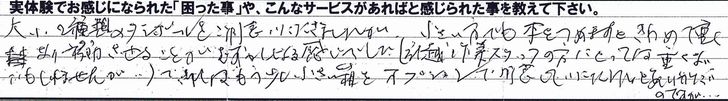 実体験でお感じになられた「困った事」や、こんなサービスがあればと感じられた事を教えて下さい。
大小、2種類のダンボールをご用意いただきましたが、小さい方でも本をつめますときわめて重く
あり移動させることがむずかしく感じました(引越作業スタッフの方にとっては重くない
かもしれませんが…)できればもう少し小さい箱をオプションで用意していただけるとありがたい
のですが…